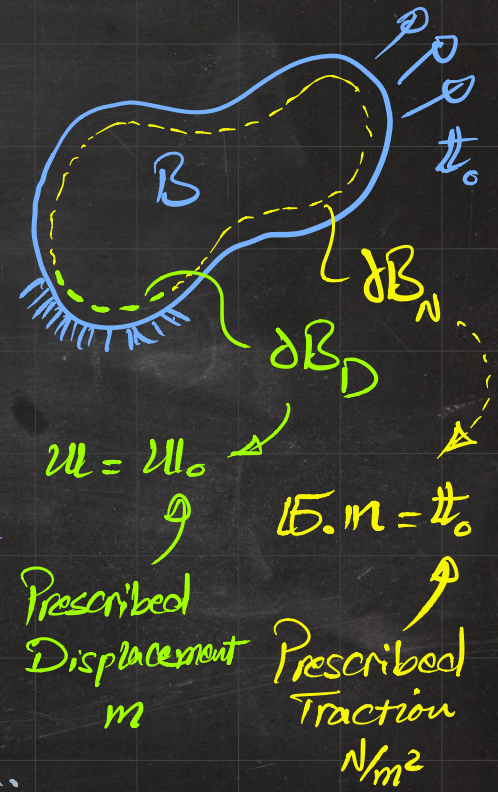 B
𝕥₀
∂B_N
∂B_D
𝕦 = 𝕦₀
𝕟 = 𝕥₀
Prescribed
Displacement
m
Prescribed
Traction
N/m²